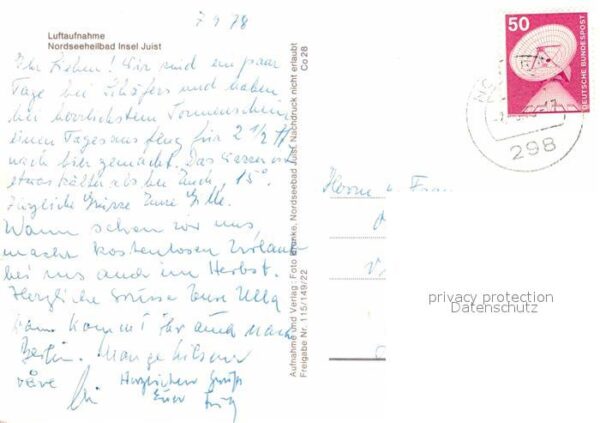 7.9.78
Luftaufnahme
Nordseeheilbad Insel Juist
Ihr Lieben! Wir sind ein paar
Tage bei Schäfers und haben
bei herrlichstem Sonnenschein
einen Tagesausflug für 2 1/2
nach hier gemacht. Das Wasser ist
etwas kälter als bei Euch, 15°.
Herzliche Grüsse Eure
Wann schon wir uns,
macht kostenlosen Urlaub
bei uns auch im Herbst.
Herzliche Grüsse Eure Ulla
Wann kommt Ihr auch nach
Berlin.
wäre
Herzlichen Gruß
Euer Fritz
Aufnahme und Verlag: Foto Brunke, Nordseebad Juist, Nachdruck nicht erlaubt
Freigabe Nr. 115/149/22
Co 28
50
DEUTSCHE BUNDESPOST
298
Herrn u. Frau
privacy protection
Datenschutz